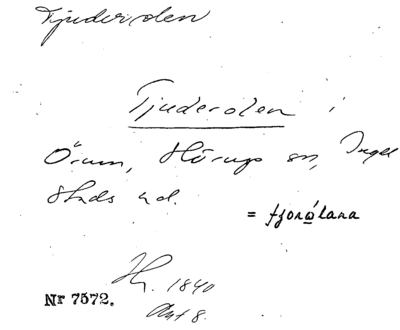 Tjuderolen
Tjuderolen i
Örum, Hörups sn, Ingel
stads hd.
= fjorólana
Hz. 1840
Nr 7572.
Akt 8.